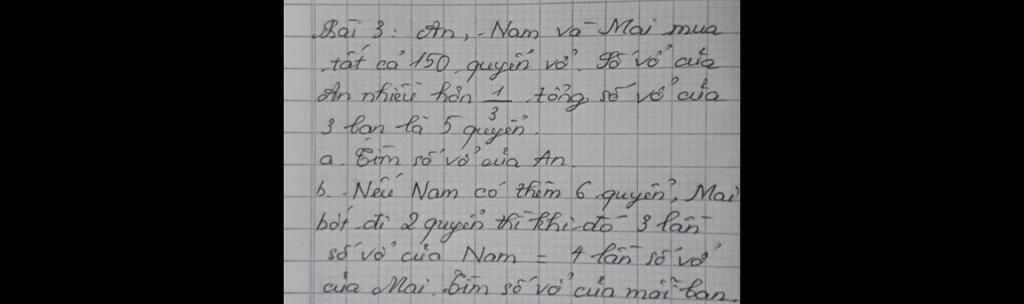 Bài 3: An, Nam và Mai mua
tất cả 150 quyển vở. Số vở của
An nhiều hơn 1/3 tổng số vở của
3 bạn là 5 quyển.
a. Tìm số vở của An.
b. Nếu Nam có thêm 6 quyển, Mai
bớt đi 2 quyển thì khi đó 3 lần
số vở của Nam = 4 lần số vở
của Mai. Tìm số vở của mỗi bạn.